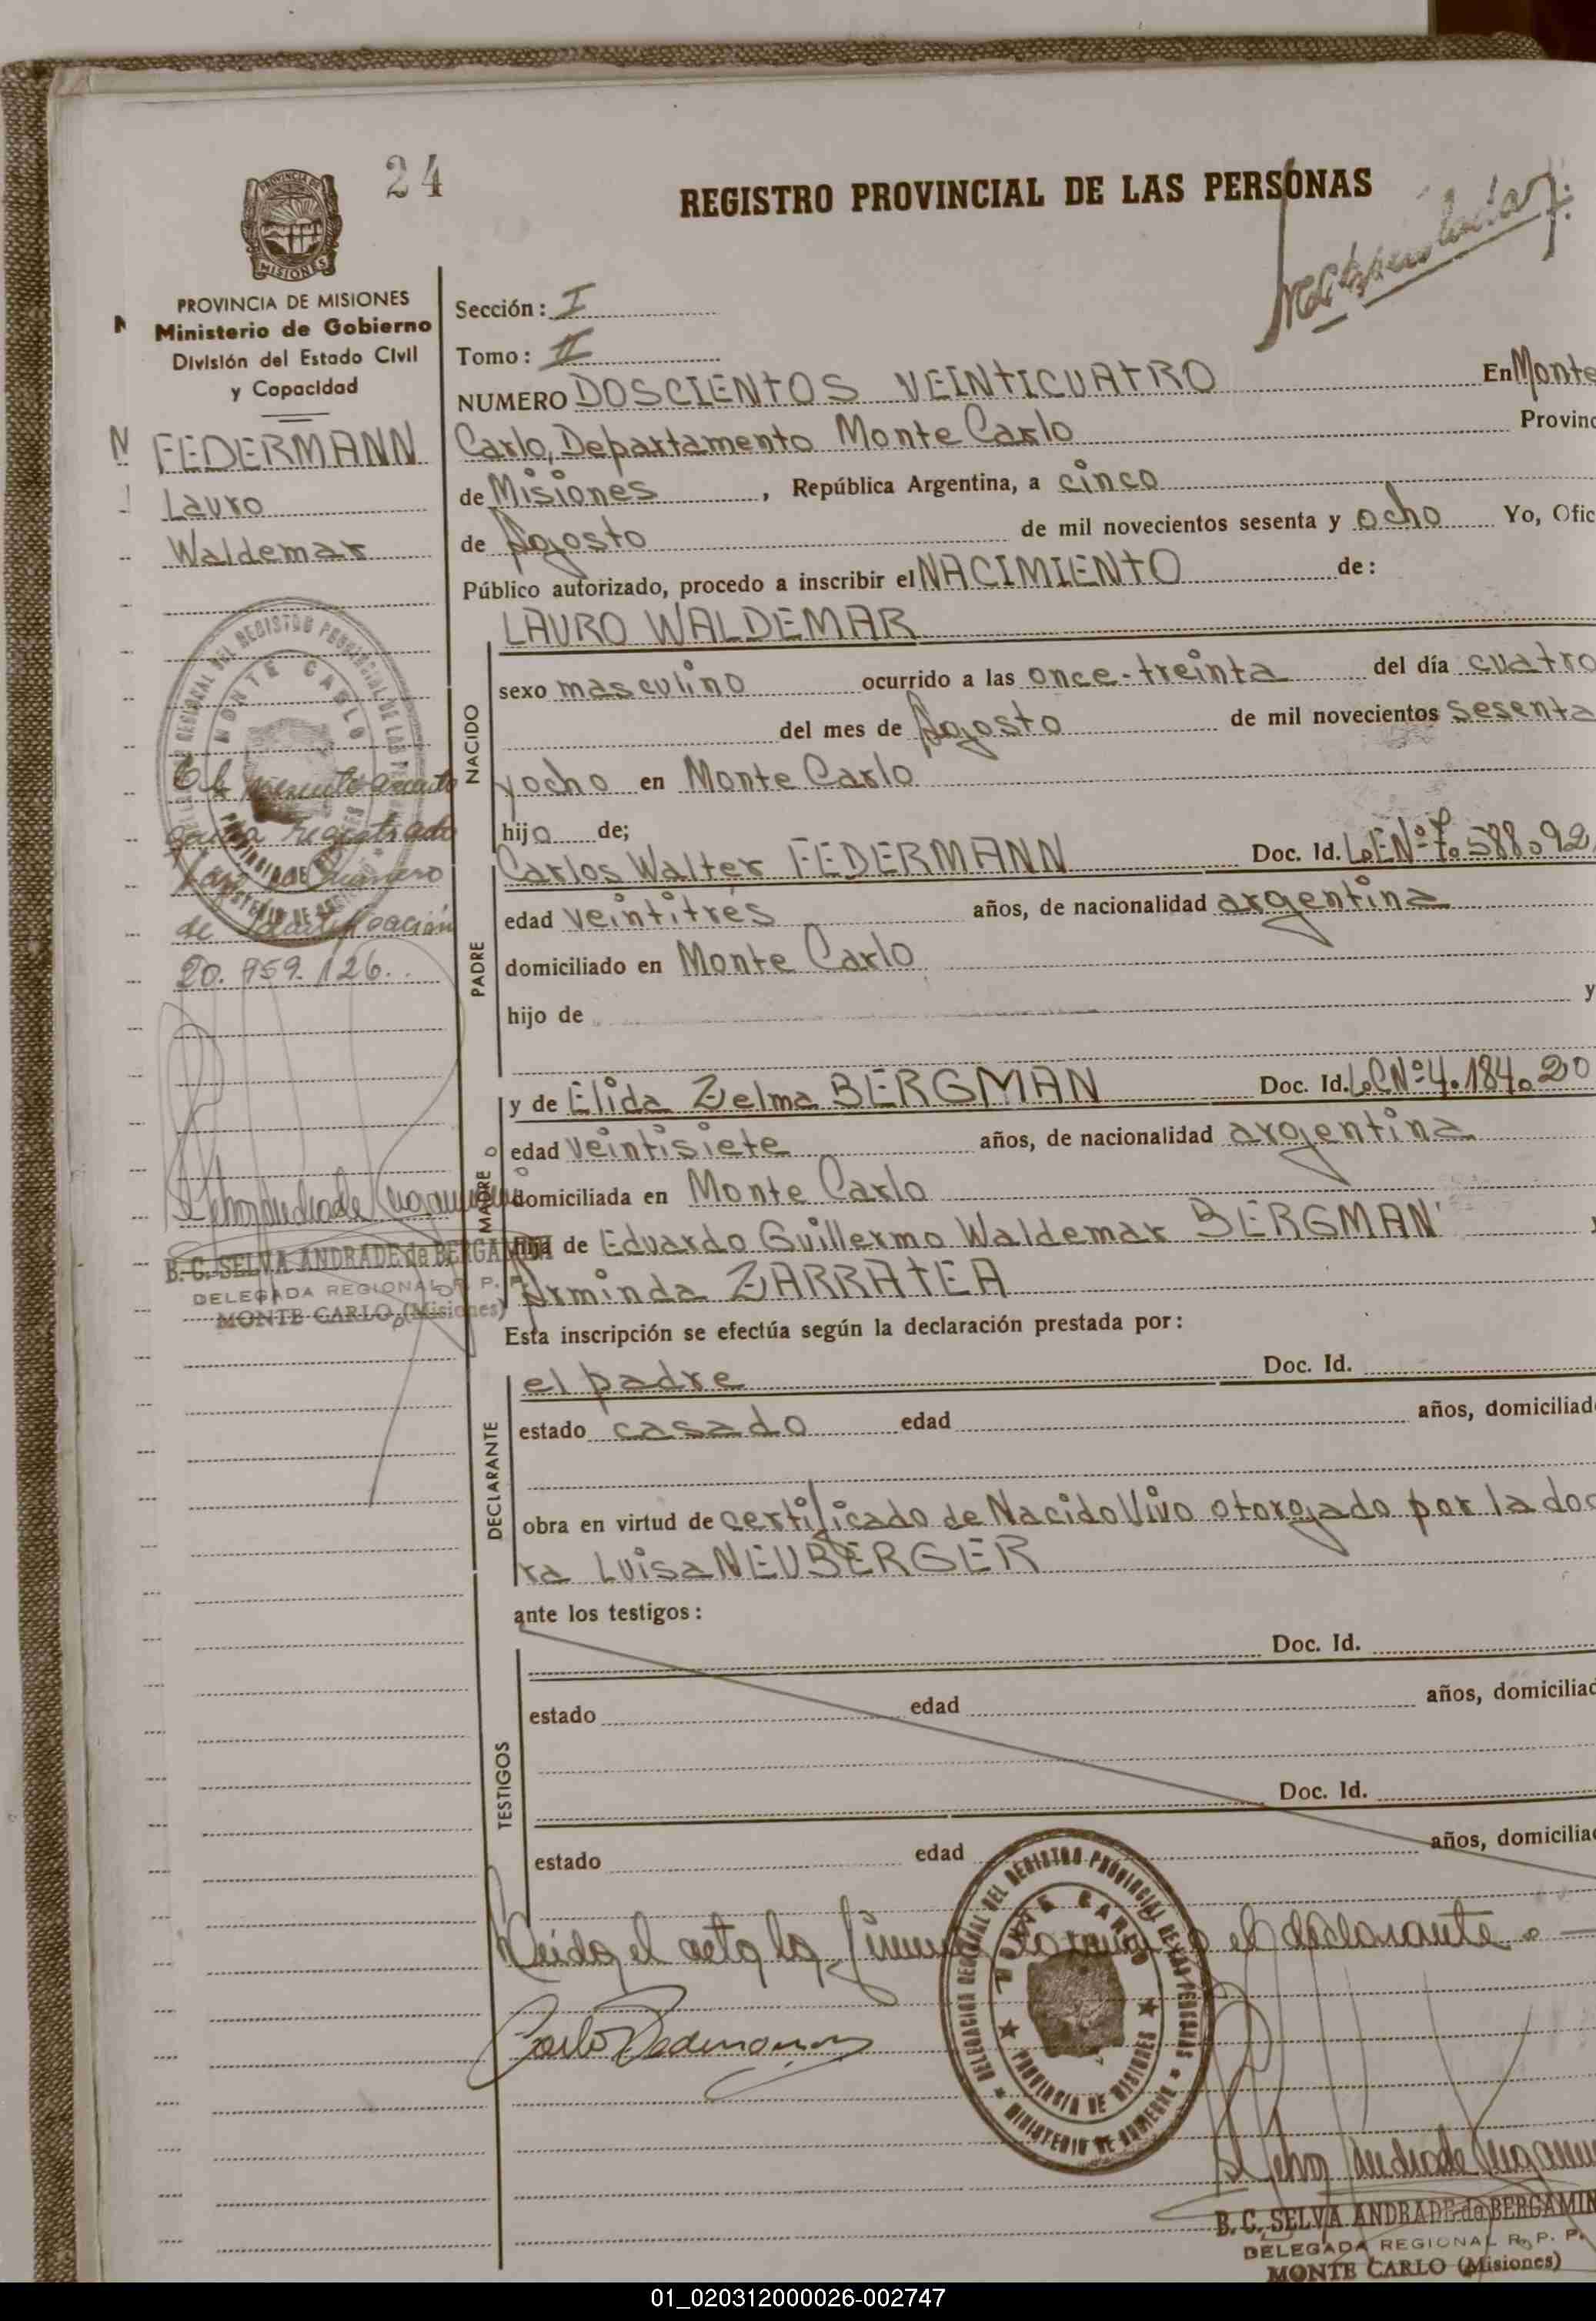 24
REGISTRO PROVINCIAL DE LAS PERSONAS
PROVINCIA DE MISIONES
Ministerio de Gobierno
División del Estado Civil
y Capacidad
FEDERMANN
Lauro
Waldemar
El presente
registrado
número
de Identificación
20.959.126.
B. C. SELVA ANDRADE de BERGAMINI
DELEGADA REGIONAL R. P. P.
MONTE CARLO (Misiones)
Sección: I
Tomo: II
NUMERO DOSCIENTOS VEINTICUATRO En Monte
Carlo, Departamento Monte Carlo Provinc
de Misiones, República Argentina, a cinco
de Agosto de mil novecientos sesenta y ocho Yo, Ofic
Público autorizado, procedo a inscribir el NACIMIENTO de:
NACIDO
LAURO WALDEMAR
sexo masculino ocurrido a las once-treinta del día cuatro
del mes de Agosto de mil novecientos sesenta
y ocho en Monte Carlo
hijo de;
PADRE
Carlos Walter FEDERMANN Doc. Id. L.E.Nº 7.588.92
edad veintitres años, de nacionalidad argentina
domiciliado en Monte Carlo
hijo de y
MADRE
y de Elida Zelma BERGMAN Doc. Id. L.C.Nº 4.184.20
edad veintisiete años, de nacionalidad argentina
domiciliada en Monte Carlo
hija de Eduardo Guillermo Waldemar BERGMAN
Arminda ZARRATEA
Esta inscripción se efectúa según la declaración prestada por:
DECLARANTE
el padre Doc. Id.
estado casado edad años, domiciliad
obra en virtud de certificado de Nacido Vivo otorgado por la doc
ra Luisa NEUBERGER
ante los testigos:
TESTIGOS
Doc. Id.
estado edad años, domiciliad
Doc. Id.
estado edad años, domiciliad
Leida el acta la firma el declarante.
DELEGACION REGIONAL DEL REGISTRO PROVINCIAL DE LAS PERSONAS
MONTE CARLO
PROVINCIA DE MISIONES
MINISTERIO DE GOBIERNO
B. C. SELVA ANDRADE de BERGAMIN
DELEGADA REGIONAL R. P. P.
MONTE CARLO (Misiones)
01_020312000026-002747